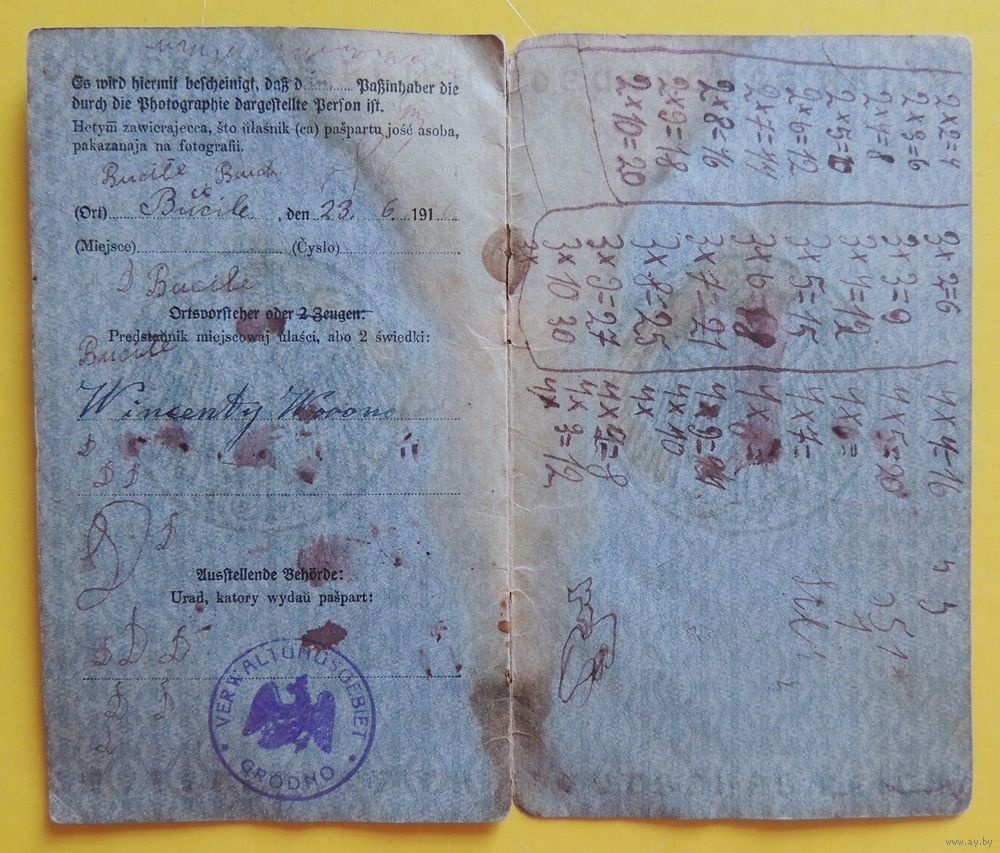 Es wird hiermit bescheinigt, daß d in Paßinhaber die
durch die Photographie dargestellte Person ist.
Hetym zawierajecca, što ułaśnik (ca) pašpartu jość asoba,
pakazanaja na fotografii.
Bucile
(Ort) Bucile, den 23. 6. 191
(Miejsce) (Čysło)
D Bucile
Ortsvorsteher oder 2 Zeugen:
Predstaŭnik miejscowaj ułaści, abo 2 świedki:
Bucile
Wincenty Worono
D
D D
D D
Ausstellende Behörde:
Urad, katory wydaŭ pašpart:
D D D
D D
VERWALTUNGSGEBIET
GRODNO
2x2=4
2x3=6
2x4=8
2x5=10
2x6=12
2x7=14
2x8=16
2x9=18
2x10=20
3x2=6
3x3=9
3x4=12
3x5=15
3x6=18
3x7=21
3x8=25
3x9=27
3x10 30
3x
4x4=16
4x5=20
4x6=
4x7=
4x8=
4x9=
4x10
4x
4x2=8
4x3=12
4x
www.ay.by